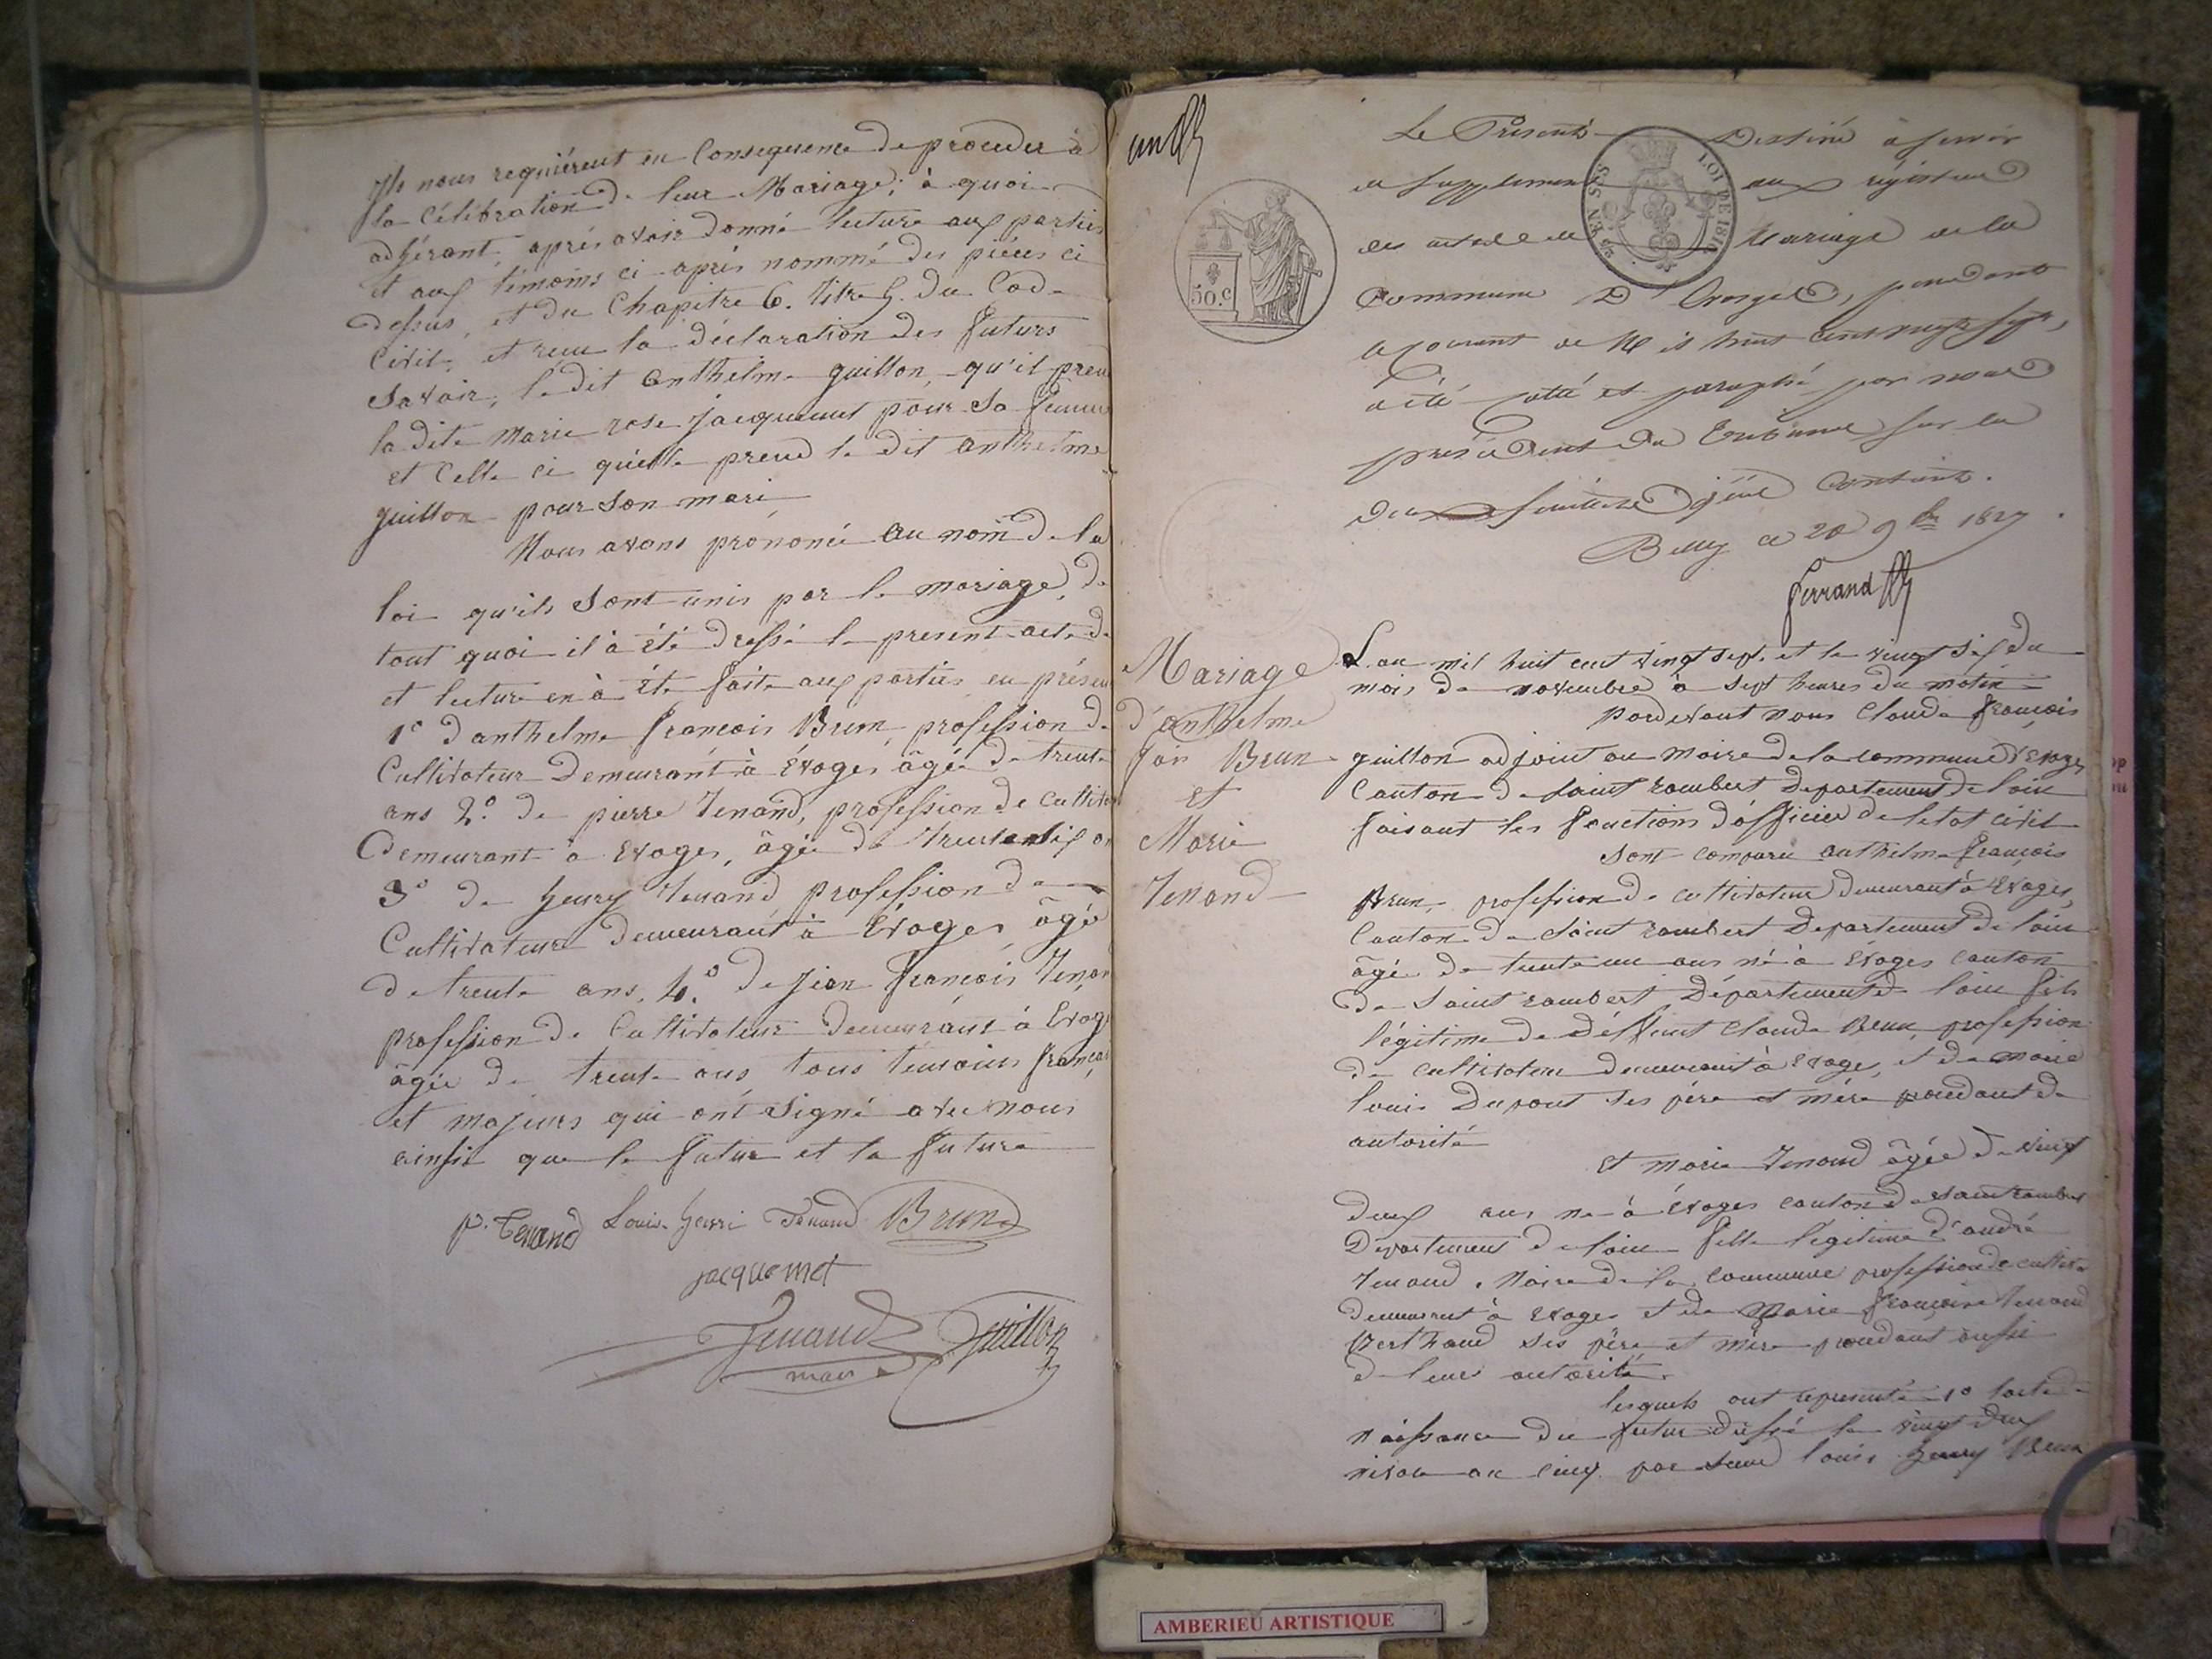 Ils nous requièrent en Consequence de proceder à
la Célébration de leur Mariage; à quoi
adhérant, après avoir donné lecture aux parties
et aux témoins ci-après nommé des pièces ci
dessus, et du Chapitre 6. titre 5. du Code
Civil, et reçu la déclaration des futurs
Savoir, le dit anthelme guillon, qu'il prend
la dite marie rose jacquemet pour Sa femme
et Celle ci qu'elle prend le dit anthelme
guillon pour Son mari
Nous avons prononcé au nom de la
loi qu'ils Sont unis par le mariage, de
tout quoi il à été dressé le present acte de
et lecture en à été faite aux parties en présence
1º d'anthelme françois Brun, profession de
Cultivateur Demeurant à Evoges âgée de trente
ans 2º. de pierre Tenand, profession de Cultiv
Demeurant à Evoges, âgée de trente six an
3º de henry Tenand profession de
Cultivateur demeurant à Evoges âgé
de trente ans, 4.º de jean françois Tenan
profession de Cultivateur demeurant à Evoge
âgée de trente ans, tous temoins françai
et majeurs qui ont signé avec nous
ainsi que le futur et la future
p. Tenand Louis henri Tenand Brun
jacquemet
Tenand Guillon
maire
un
Le Présent Destiné à servir
de supplement aux régistres
des actes de Mariage de la
Commune D'Evoges, pendant
le courant de Mil huit cent vingt sept,
a été cotté et paraphé par nous
président du Tribunal sur les
deux feuilles Contient.
Belley ce 20 9bre 1827.
Ferrand
50.c
LOI DE 1816
Mariage
d'anthelme
fois Brun
et
Marie
Tenand
L'an mil huit cent vingt sept. et le vingt six du
mois de novembre à sept heures du matin
Pardevant nous Claude françois
guillon adjoint au maire de la commune d'Evoges
Canton de Saint rambert Departement de l'ain
faisant les fonctions d'officier de l'etat civil
Sont comparu anthelme françois
Brun, profession de cultivateur demeurant à Evoges,
Canton de Saint rambert Departement de l'ain
âgée de trente un ans né à Evoges canton
de Saint rambert Département de l'ain fils
légitime de déffunt Claude Brun profession
de cultivateur demeurant à Evoges, et de marie
louise Dupont ses père et mère procédant de
autorité
et marie Tenand âgée de vingt
deux ans né à Evoges canton de Saint rambert
Departement de l'ain fille légitime d'andré
Tenand. Maire de la Commune profession de cultiva
demeurant à Evoges et de Marie françoise Tenand
Berthaud ses père et mère procédant aussi
de leur autorité.
lesquels ont representé 1º l'acte de
naissance du futur dressé le vingt deux
nivose an cinq par louis henry Brun
AMBERIEU ARTISTIQUE